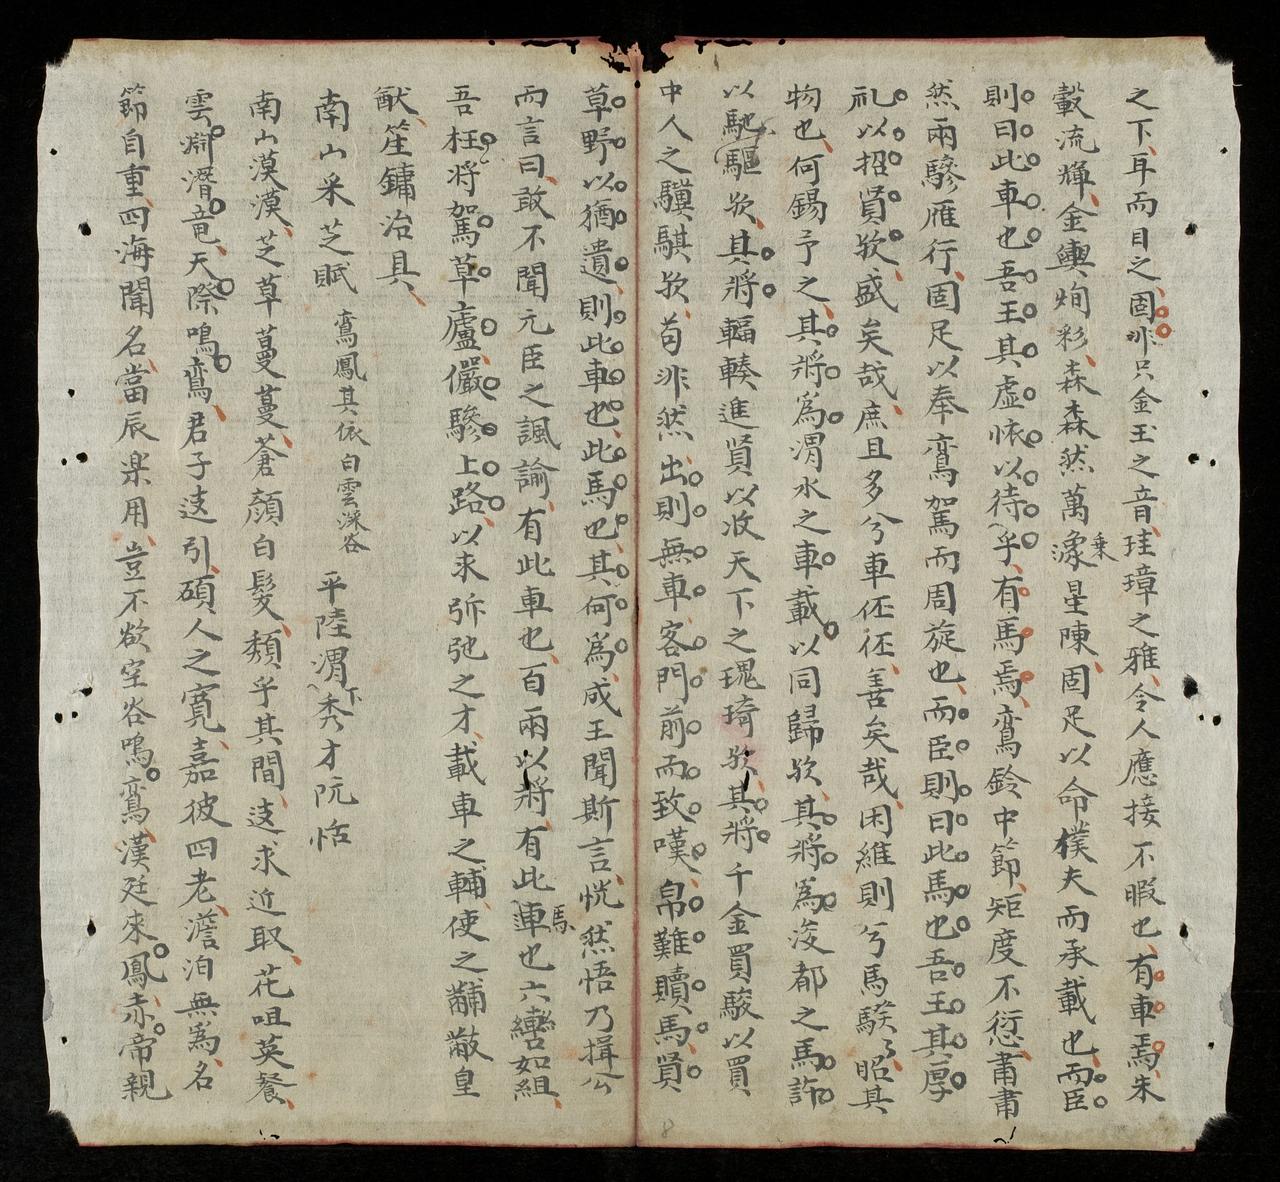 之下耳而目之固非只金玉之音珪璋之雅令人應接不暇也有車焉朱
轂流輝金輿炯彩森森然萬乗星陳固足以命樸夫而承載也而臣
則曰此車也吾王其虚恢以待乎有馬焉鸞鈴中節矩度不愆肅肅
然兩驂雁行固足以奉鸞駕而周旋也而臣則曰此馬也吾王其厚
礼以招賢欤盛矣哉庶且多兮車伾伾善矣哉闲維則兮馬騤々昭其
物也何錫予之其將為渭水之車載以同歸欤其將為浚都之馬許
以馳驅欤其將輻輳進賢以收天下之瑰琦欤其將千金買駿以買
中人之驥騏欤苟非然出則無車客門前而致嘆帛難贖馬賢
草野以猶遺則此車也此馬也其何為成王聞斯言恍然悟乃揖公
而言曰敢不聞元臣之諷諭有此車也百兩以將有此馬也六轡如組
吾枉將駕草廬儼驂上路以求斥弛之才載車之輔使之黼黻皇
猷笙鏞冶具
南山采芝賦 鸞鳳其依白雲深谷 平陸渭下秀才阮恬
南山漠漠芝草蔓蔓蒼顏白髮頹乎其間迖求近取花咀英餐
雲澗潛竜天際鳴鸞君子迖引碩人之寬嘉彼四老澹泊無為名
節自重四海聞名當辰楽用豈不欲空谷鳴鸞漢廷來鳳赤帝親